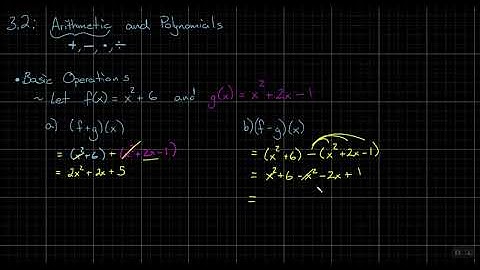 3.2: Arithmetic and Polynomials
+, −, •, ÷
• Basic Operations
~ Let f(x) = x² + 6 and g(x) = x² + 2x − 1
a) (f+g)(x)
= (x²+6) + (x²+2x−1)
= 2x² + 2x + 5
b) (f−g)(x)
= (x²+6) − (x²+2x−1)
= x²+6 − x² − 2x + 1
=